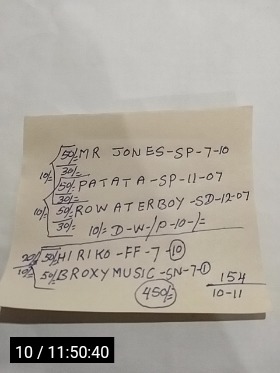 50/- MR JONES-SP-7-10
10/- 30/-
50/- PATATA-SP-11-07
30/-
10/- 50/- ROWATERBOY-SD-12-07
30/- 10/= D-W-/P-10-/=
50/- HIRIKO-FF-7-10
50/- BROXYMUSIC-SN-7-1
450/- 154
10-11
10 / 11:50:40